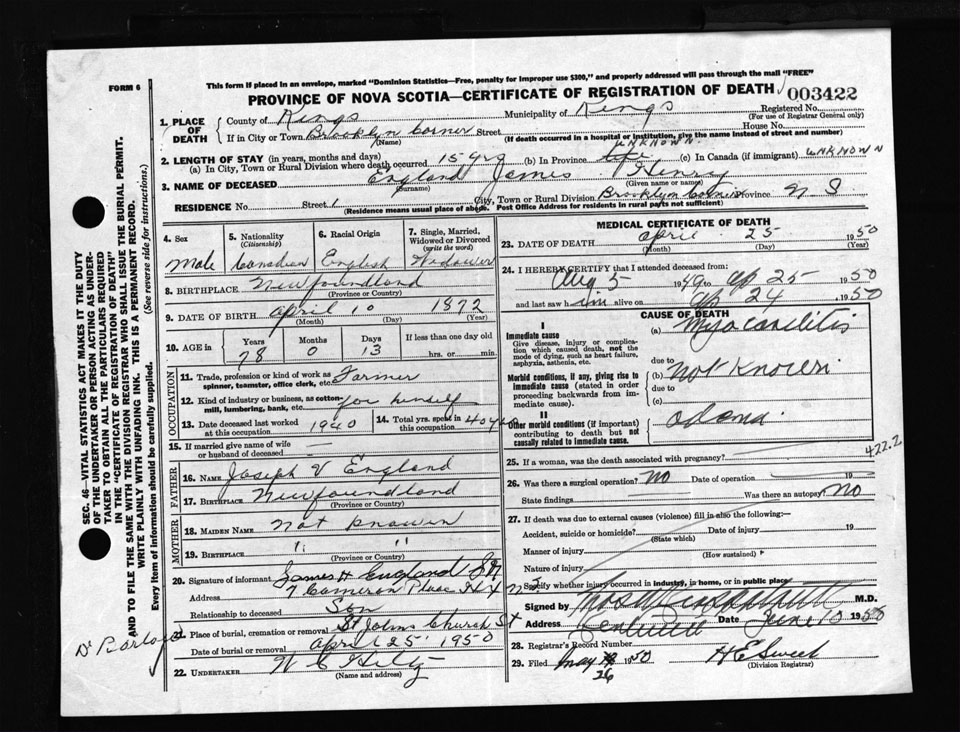 This form if placed in an envelope, marked "Dominion Statistics—Free, penalty for improper use $300," and properly addressed will pass through the mail "FREE"
FORM 6
PROVINCE OF NOVA SCOTIA—CERTIFICATE OF REGISTRATION OF DEATH 003422
1. PLACE OF DEATH County of Kings Municipality of Kings Registered No.
(For use of Registrar General only)
If in City or Town Brooklyn Corner Street House No.
(Name) (If death occurred in a hospital or institution, give the name instead of street and number)
2. LENGTH OF STAY (in years, months and days)
(a) In City, Town or Rural Division where death occurred 15 yrs (b) In Province UNKNOWN (c) In Canada (if immigrant) UNKNOWN
3. NAME OF DECEASED England James Henry
(Surname) (Given name or names)
RESIDENCE No. Street City, Town or Rural Division Brooklyn Corner Province N S
(Residence means usual place of abode. Post Office Address for residents in rural parts not sufficient)
4. Sex Male
5. Nationality (Citizenship) Canadian
6. Racial Origin English
7. Single, Married, Widowed or Divorced (write the word) Widower
8. BIRTHPLACE Newfoundland
(Province or Country)
9. DATE OF BIRTH April 10 1872
(Month) (Day) (Year)
10. AGE Years 78 Months 0 Days 13 If less than one day old hrs. or min.
OCCUPATION
11. Trade, profession or kind of work as spinner, teamster, office clerk, etc. Farmer
12. Kind of industry or business, as cotton-mill, lumbering, bank, etc. for himself
13. Date deceased last worked at this occupation 1940
14. Total yrs. spent in this occupation 40 yrs
15. If married give name of wife or husband of deceased
FATHER
16. NAME Joseph V England
17. BIRTHPLACE Newfoundland
(Province or Country)
MOTHER
18. MAIDEN NAME Not Known
19. BIRTHPLACE " "
(Province or Country)
20. Signature of informant James H England
Address 7 Cameron Place Hfx N S
Relationship to deceased Son
21. Place of burial, cremation or removal St Johns Church St
Date of burial or removal April 25 1950
22. UNDERTAKER W C Hiltz
MEDICAL CERTIFICATE OF DEATH
23. DATE OF DEATH April 25 1950
(Month) (Day) (Year)
24. I HEREBY CERTIFY that I attended deceased from:
Aug 5 1949 to Ap 25 1950
and last saw him alive on Ap 24 1950
CAUSE OF DEATH
I
Immediate cause
Give disease, injury or complication which caused death, not the mode of dying, such as heart failure, asphyxia, asthenia, etc.
(a) Myocarditis
due to
Morbid conditions, if any, giving rise to immediate cause (stated in order proceeding backwards from immediate cause).
(b) Not Known
due to
(c)
II
Other morbid conditions (if important) contributing to death but not causally related to immediate cause.
422.2
25. If a woman, was the death associated with pregnancy?
26. Was there a surgical operation? No Date of operation 19
State findings Was there an autopsy? No
27. If death was due to external causes (violence) fill in also the following:—
Accident, suicide or homicide? Date of injury 19
(State which)
Manner of injury (How sustained)
Nature of injury
Specify whether injury occurred in industry, in home, or in public place
Signed by M.D.
Address Kentville Date June 10 1950
28. Registrar's Record Number
29. Filed May 26 1950 H E Sweet
(Division Registrar)
SEC. 46—VITAL STATISTICS ACT MAKES IT THE DUTY
OF THE UNDERTAKER OR PERSON ACTING AS UNDER-
TAKER TO OBTAIN ALL THE PARTICULARS REQUIRED
IN THE "CERTIFICATE OF REGISTRATION OF DEATH"
AND TO FILE THE SAME WITH THE DIVISION REGISTRAR WHO SHALL ISSUE THE BURIAL PERMIT.
WRITE PLAINLY WITH UNFADING INK. THIS IS A PERMANENT RECORD.
Every item of information should be carefully supplied. (See reverse side for instructions.)